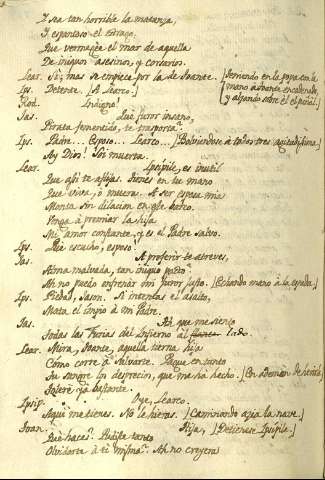 Y sea tan horrible la matanza,
Y espantoso el estrago,
Que vermegée el mar de aquella
De iniquos asesinos, y corsarios.
Lear. Sí; mas se empieze por la de Toante. [Teniendo en la popa con la mano a Toante encadenado, y alzando sobre él el puñal.]
Ips. Detente. [A Learco.]
Rod. Indigno!
Jas. Qué furor insano,
Pirata fementido, te trasporta?
Ips. Padre... Esposo... Learco... [Bolviendose a todos tres agitadisima.]
Ay Dios! Soi muerta.
Lear. Ipsipile, es inutil
Que asi te aflijas. Tienes en tu mano
Que viva, ó muera. A ser esposa mia
Monta sin dilacion en este barco.
Venga à premiar la hija
Mi amor constante, y es el Padre salvo.
Ips. Qué escucho, esposo!
Jas. A proferir te atreves,
Alma malvada, tan iniquo pacto?
Ah no puedo enfrenar mi furor justo. [Echando mano à la espada.]
Ips. Piedad, Jason. Si intentas el asalto,
Mata el impio à mi Padre.
Jas. Ah que me siento
Todas las Furias del Infierno al lado.
Lear. Mira, Toante, aquella tierna hija
Como corre à salvarte. Pague en tanto
Tu sangre los desprecios, que me ha hecho. [En ademan de herirle.]
Esperè ya bastante.
Ipsip. Oye, Learco.
Aqui me tienes. No le hieras. [Caminando azia la nave.]
Toan. Hija, [Detienese Ipsipile.]
Que haces? Pudiste tanto
Olvidarte à ti misma? Ah no creyera